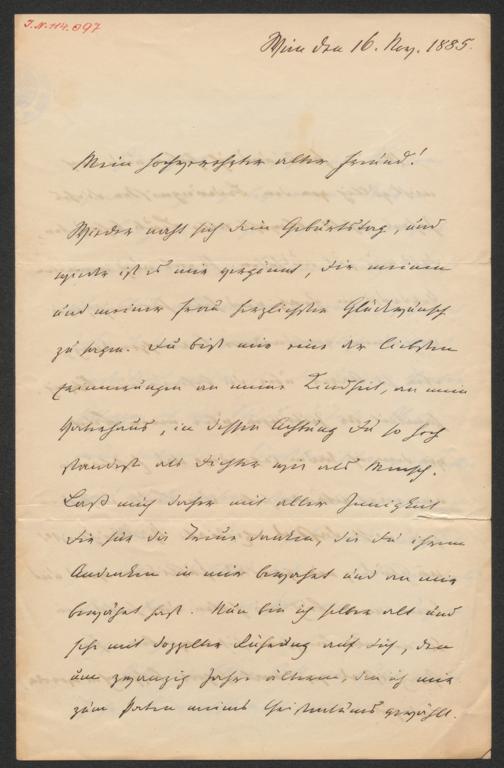 I.N. 114.097
Wien den 16. Nov. 1885.
Mein hochverehrter alter Freund!
Wieder naht sich Dein Geburtstag, und
wieder ist es mir gegönnt, Dir meinen
und meiner Frau herzlichsten Glückwunsch
zu sagen. Du bist mir eine der liebsten
Erinnerungen an meine Kindheit, an mein
Vaterhaus, in dessen Achtung Du so hoch
standest als Dichter wie als Mensch.
Laß mich daher mit aller Innigkeit
Dir für die Treue danken, die Du ihrem
Andenken in mir bewahrt und an mir
bewährt hast. Nun bin ich selber alt und
sehe mit doppelter Rührung auf Dich, den
um zwanzig Jahre älteren, den ich mir
zum Paten meines Greisentums gewählt.